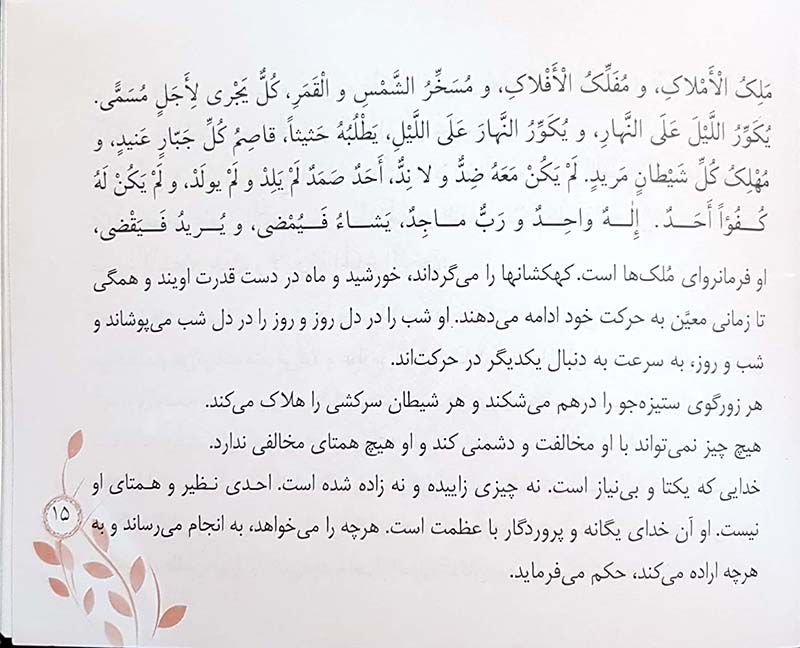 مَلِکُ الْأَمْلاکِ، و مُفَلِّکُ الْأَفْلاکِ، و مُسَخِّرُ الشَّمْسِ و الْقَمَرِ، کُلٌّ یَجْری لِأَجَلٍ مُسَمًّی.
یُکَوِّرُ اللَّیْلَ عَلَی النَّهارِ، و یُکَوِّرُ النَّهارَ عَلَی اللَّیْلِ، یَطْلُبُهُ حَثیثاً، قاصِمُ کُلِّ جَبّارٍ عَنیدٍ، و
مُهْلِکُ کُلِّ شَیْطانٍ مَریدٍ. لَمْ یَکُنْ مَعَهُ ضِدٌّ و لا نِدٌّ، أَحَدٌ صَمَدٌ لَمْ یَلِدْ و لَمْ یولَدْ، و لَمْ یَکُنْ لَهُ
کُفُوًاً أَحَدٌ. إِلٰهٌ واحِدٌ و رَبٌّ ماجِدٌ، یَشاءُ فَیُمْضی، و یُریدُ فَیَقْضی،
او فرمانروای مُلک‌ها است. کهکشانها را می‌گرداند، خورشید و ماه در دست قدرت اویند و همگی
تا زمانی معیَّن به حرکت خود ادامه می‌دهند. او شب را در دل روز و روز را در دل شب می‌پوشاند و
شب و روز، به سرعت به دنبال یکدیگر در حرکت‌اند.
هر زورگوی ستیزه‌جو را درهم می‌شکند و هر شیطان سرکشی را هلاک می‌کند.
هیچ چیز نمی‌تواند با او مخالفت و دشمنی کند و او هیچ همتای مخالفی ندارد.
خدایی که یکتا و بی‌نیاز است. نه چیزی زاییده و نه زاده شده است. احدی نظیر و همتای او
نیست. او آن خدای یگانه و پروردگار با عظمت است. هرچه را می‌خواهد، به انجام می‌رساند و به
هرچه اراده می‌کند، حکم می‌فرماید.
۱۵